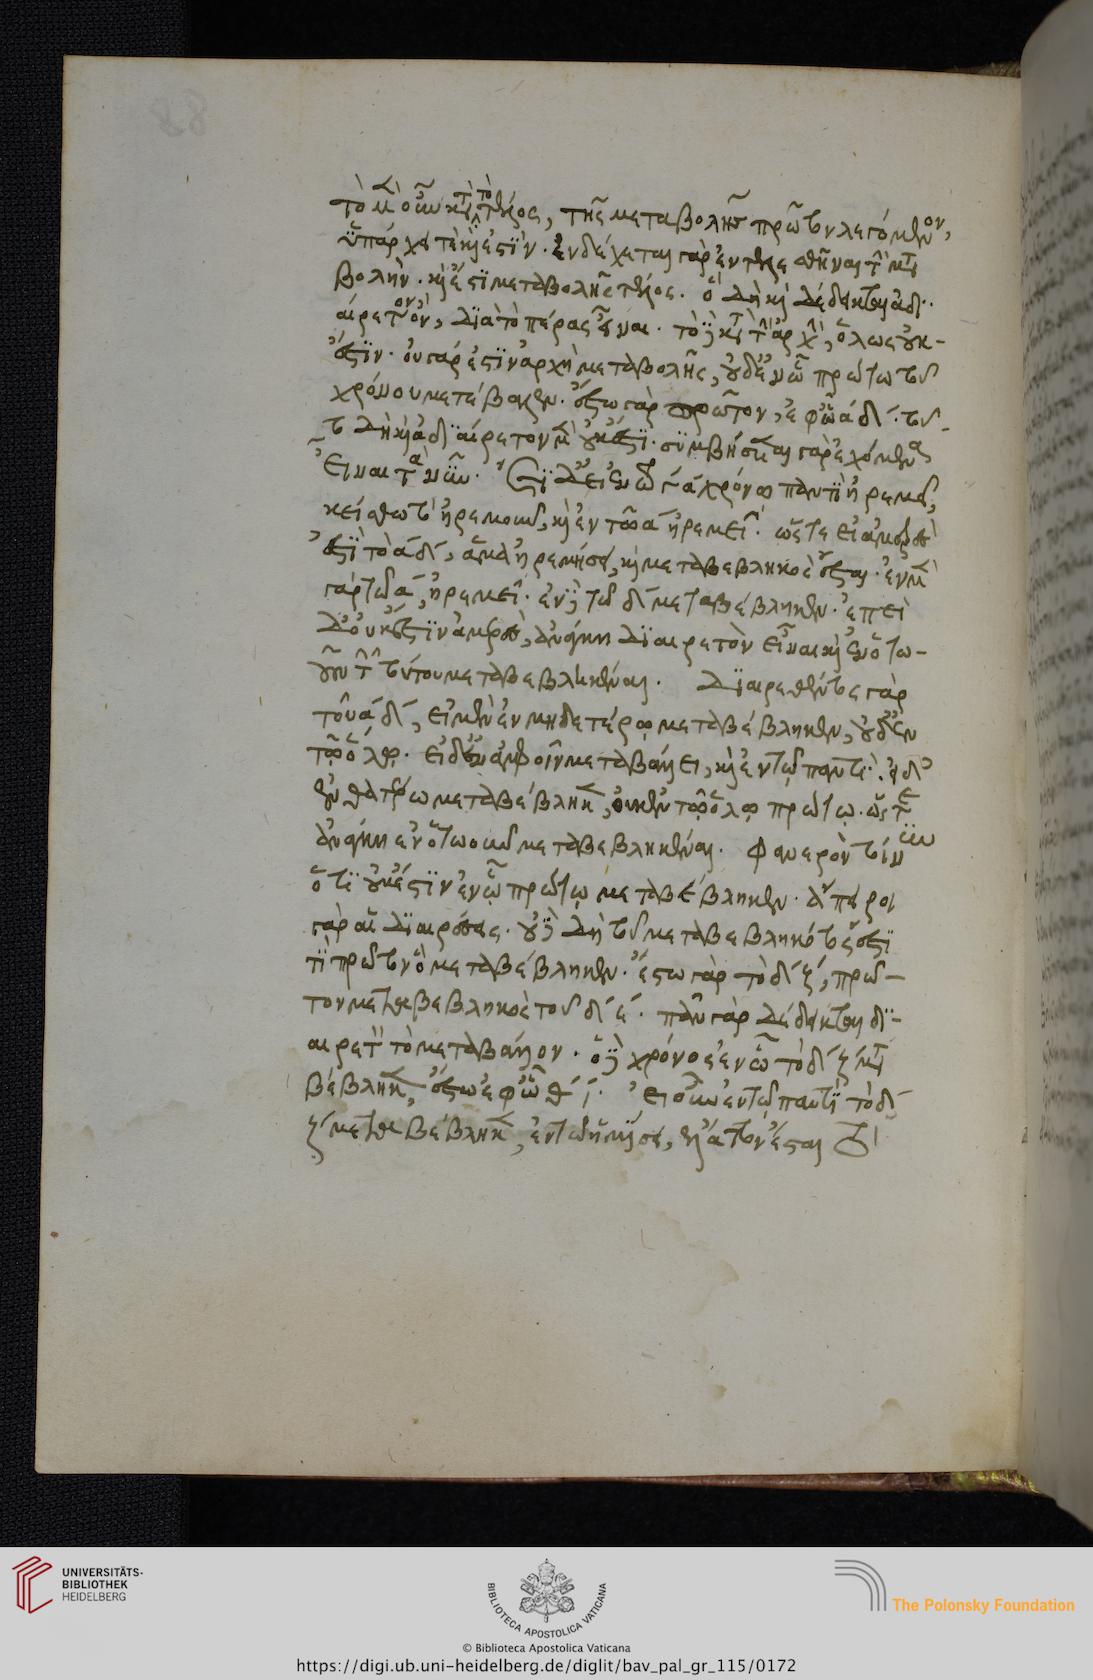 τὸ μὲν οὖν κατὰ τὸ τέλος, τῆς μεταβολῆς πρῶτον λεγόμενον,
ὑπάρχει τὲ καὶ ἐστὶν. ἐνδέχεται γὰρ ἐπιτελεσθῆναι τὴν μετα
βολὴν. καὶ ἔστι μεταβολῆς τέλος. ὃ δὴ καὶ δέδεικται ἀδι-
αίρετον ὂν, διὰ τὸ πέρας εἶναι. τὸ δὲ κατὰ τὴν ἀρχὴν, ὅλως οὐκ-
ἔστιν. οὐ γάρ ἐστιν ἀρχὴ μεταβολῆς, οὐδ' ἐν ᾧ πρώτω τοῦ
χρόνου μετέβαλεν. ἔστω γὰρ πρῶτον, ἐφ' ᾧ ἀδ. τοῦ-
το δὴ καὶ ἀδιαίρετον μὲν οὐκ ἔστι. συμβήσεται γὰρ ἐχόμενα
εἶναι τὰ νῦν. Ἔτι δ' εἰ ἐν τῷ γα χρόνῳ παντὶ ἠρεμεῖ,
κείσθω γὰρ ἠρεμοῦν, καὶ ἐν τῷ ᾱ ἠρεμεῖ. ὥστε εἰ ἀμερὲς
ἐστὶ τὸ ἀδ, ἅμα ἠρεμήσει, καὶ μεταβεβληκὸς ἔσται. ἐν μὲν
γὰρ τῶ ᾱ, ἠρεμεῖ. ἐν δὲ τῶ δ μεταβέβληκεν. ἐπεὶ
δ' οὐκ ἔστιν ἀμερὲς, ἀνάγκη διαιρετὸν εἶναι καὶ ἐν ὁτω-
οῦν τῶν τούτου μεταβεβληκέναι. Διαιρεθέντος γὰρ
τοῦ ἀδ, εἰ μὲν ἐν μηδετέρῳ μεταβέβληκεν, οὐδ' ἐν
τῷ ὅλῳ. εἰ δ' ἐν ἀμφοῖν μεταβάλλει, καὶ ἐν τῷ παντί. εἰ δ'
ἐν θατέρω μεταβέβληκεν, οὐκ ἐν τῷ ὅλῳ πρώτῳ. ὥστε
ἀνάγκη ἐν ὁτωοῦν μεταβεβληκέναι. Φανερὸν τοίνυν
ὅτι οὐκ ἔστιν ἐν ᾧ πρώτῳ μεταβέβληκεν. ἄπειροι
γὰρ αἱ διαιρέσεις. οὐδὲ δὴ τοῦ μεταβεβληκότος ἔστι
τὶ πρῶτον ὃ μεταβέβληκεν. ἔστω γὰρ τὸ δζ, πρῶ-
τον μεταβεβληκὸς τοῦ δε. πᾶν γὰρ δέδεικται δι-
αιρετὸν τὸ μεταβάλλον. ὁ δὲ χρόνος ἐν ᾧ τὸ δζ μετα
βέβληκεν, ἔστω ἐφ' ᾧ θι. Εἰ οὖν ἐν τῷ παντὶ τὸ δ
ζ μεταβέβληκεν, ἐν τῶ ἡμίσει, ἔλαττον ἔσται τι
UNIVERSITÄTS-
BIBLIOTHEK
HEIDELBERG
BIBLIOTECA APOSTOLICA VATICANA
The Polonsky Foundation
© Biblioteca Apostolica Vaticana
https://digi.ub.uni-heidelberg.de/diglit/bav_pal_gr_115/0172